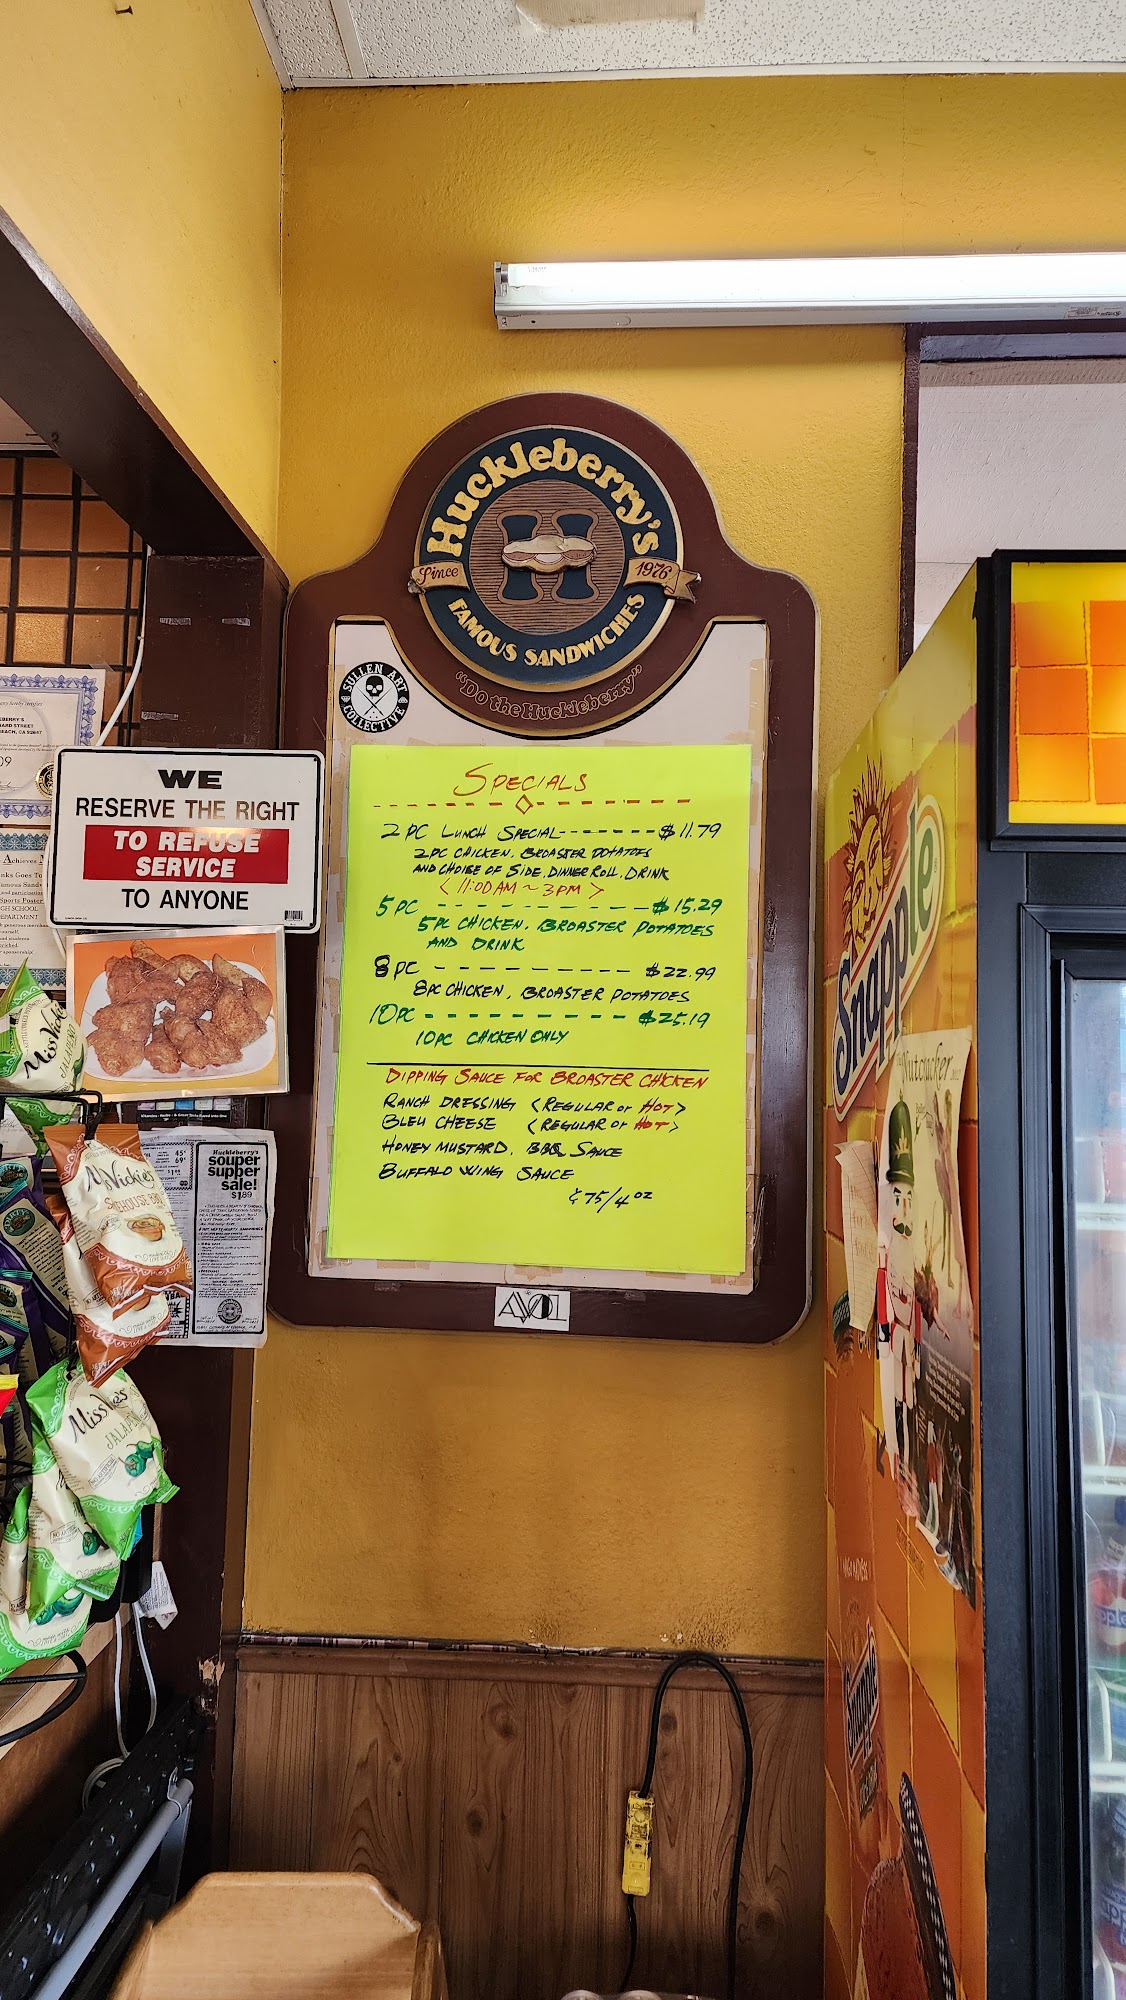 Huckleberry's
Since 1976
FAMOUS SANDWICHES
"DO the Huckleberry"
SULLEN ART
COLLECTIVE
SPECIALS
2 PC LUNCH SPECIAL------- $11.79
2PC CHICKEN. BROASTER POTATOES
AND CHOISE OF SIDE, DINNER ROLL, DRINK
< 11:00AM ~ 3PM >
5PC ---------- $15.29
5PC CHICKEN. BROASTER POTATOES
AND DRINK
8PC ---------- $22.99
8PC CHICKEN, BROASTER POTATOES
10PC ---------- $25.19
10PC CHICKEN ONLY
DIPPING SAUCE FOR BROASTER CHICKEN
RANCH DRESSING <REGULAR or HOT>
BLEU CHEESE <REGULAR or HOT>
HONEY MUSTARD. BBQ SAUCE
BUFFALO WING SAUCE
¢75/4oz
WE
RESERVE THE RIGHT
TO REFUSE
SERVICE
TO ANYONE
BEACH, CA 92647
Huckleberry's
souper
supper
sale!
$1.89
45¢
69¢
Miss Vickie's
JALAPEÑO
Vickie's
SMOKEHOUSE BBQ
Miss Vickie's
JALAPEÑO
Snapple
Nutcracker
Snapple